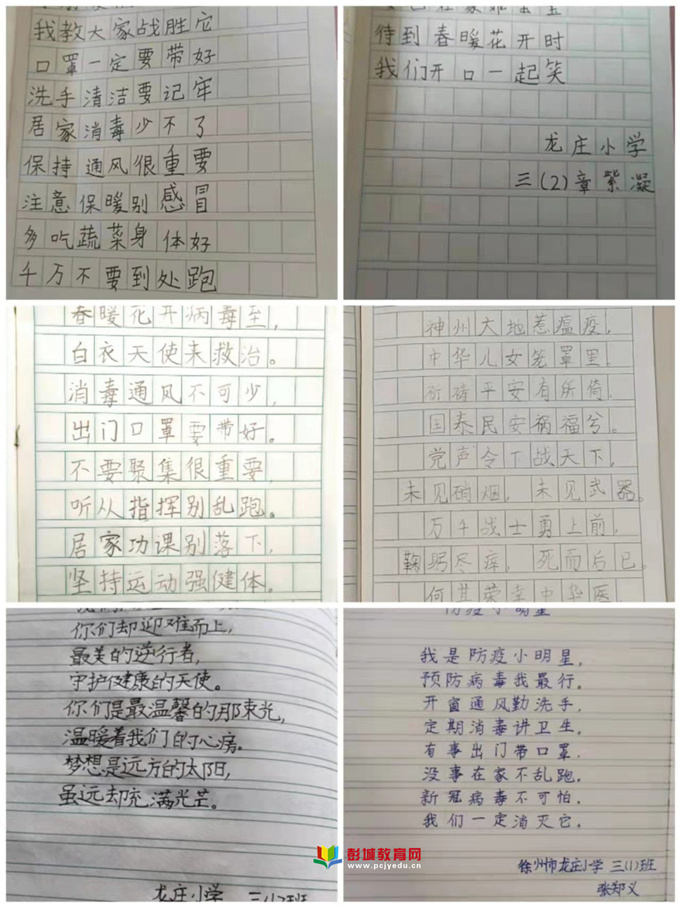 我教大家战胜它
口罩一定要带好
洗手清洁要记牢
居家消毒少不了
保持通风很重要
注意保暖别感冒
多吃蔬菜身体好
千万不要到处跑
待到春暖花开时
我们开口一起笑
龙庄小学
三(2)章紫凝
春暖花开病毒至,
白衣天使来救治。
消毒通风不可少,
出门口罩要带好。
不要聚集很重要,
听从指挥别乱跑。
居家功课别落下,
坚持运动强健体。
神州大地惹瘟疫,
中华儿女笼罩里。
祈祷平安有所倚,
国泰民安祸福兮。
党声令下战天下,
未见硝烟,未见武器。
万千战士勇上前,
鞠躬尽瘁,死而后已。
何其荣幸中华医
你们却迎难而上,
最美的逆行者,
守护健康的天使。
你们是最温馨的那束光,
温暖着我们的心房。
梦想是远方的太阳,
虽远却充满光芒。
龙庄小学 三(1)班
防疫小明星
我是防疫小明星,
预防病毒我最行。
开窗通风勤洗手,
定期消毒讲卫生。
有事出门带口罩,
没事在家不乱跑。
新冠病毒不可怕,
我们一定消灭它。
徐州市龙庄小学 三(1)班
张郑义
彭城教育网
www.pcjyedu.cn